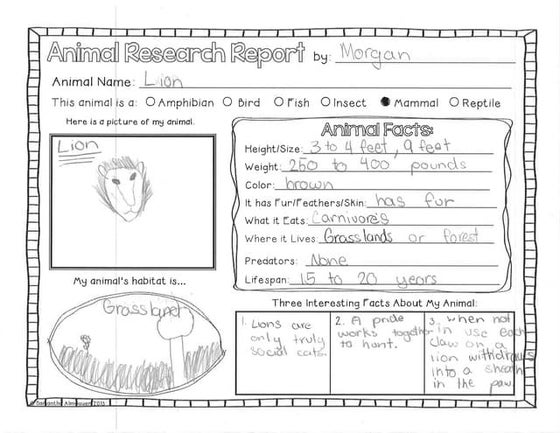 Animal Research Report by: Morgan
Animal Name: Lion
This animal is a: Amphibian Bird Fish Insect Mammal Reptile
Here is a picture of my animal.
Lion
Animal Facts:
Height/Size: 3 to 4 feet, 9 feet
Weight: 250 to 400 pounds
Color: brown
It has Fur/Feathers/Skin: has fur
What it Eats: Carnivores
Where it Lives: Grasslands or forest
Predators: None
Lifespan: 15 to 20 years
My animal's habitat is...
Grassland
Three Interesting Facts About My Animal:
1. Lions are
only truly
social cats.
2. A pride
works together
to hunt.
3. When not
in use each
claw on a
lion withdraws
into a sheath
in the paw.